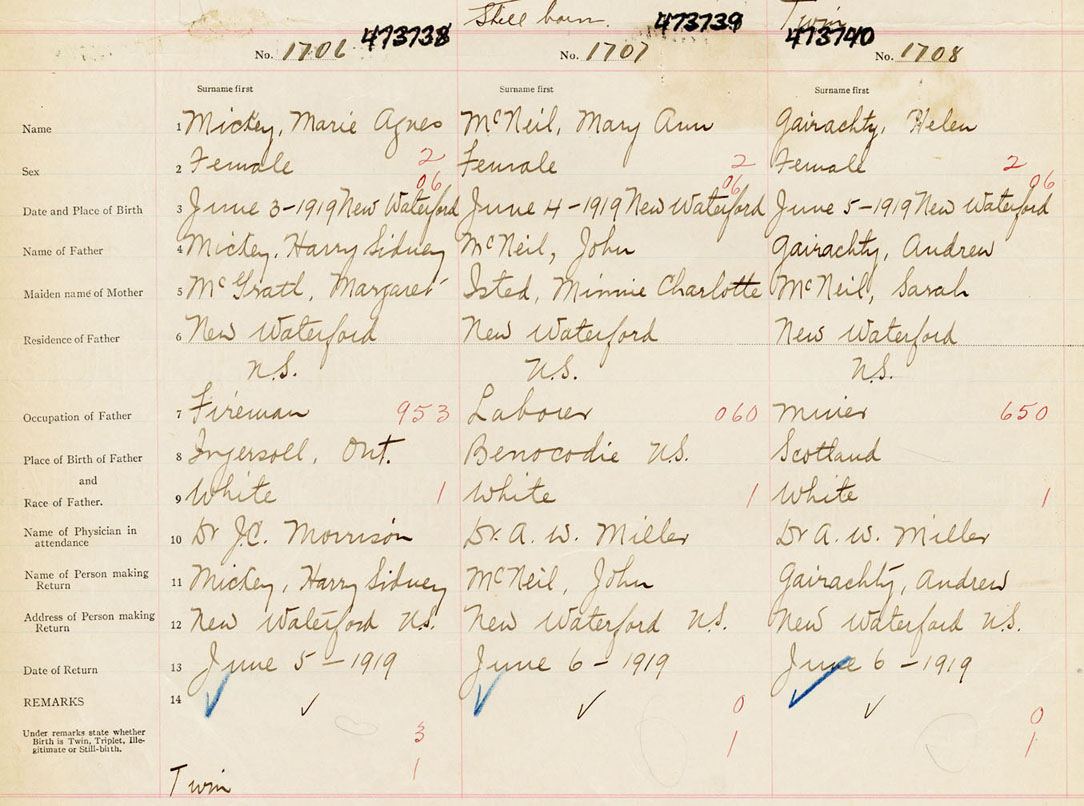 Still born. Twin
473738 473739 473740
No. 1706 No. 1707 No. 1708
Surname first Surname first Surname first
Name 1 Mickey, Marie Agnes McNeil, Mary Ann Gairachty, Helen
Sex 2 Female 2 Female 2 Female 2
06 06 06
Date and Place of Birth 3 June 3-1919 New Waterford June 4-1919 New Waterford June 5-1919 New Waterford
Name of Father 4 Mickey, Harry Sidney McNeil, John Gairachty, Andrew
Maiden name of Mother 5 McGrath, Margaret Isted, Minnie Charlotte McNeil, Sarah
Residence of Father 6 New Waterford New Waterford New Waterford
N.S. N.S. N.S.
Occupation of Father 7 Fireman 953 Laborer 060 Miner 650
Place of Birth of Father 8 Ingersoll, Ont. Benocodie N.S. Scotland
and
Race of Father. 9 White 1 White 1 White 1
Name of Physician in
attendance 10 Dr J.C. Morrison Dr. A. W. Miller Dr A. W. Miller
Name of Person making
Return 11 Mickey, Harry Sidney McNeil, John Gairachty, Andrew
Address of Person making
Return 12 New Waterford N.S. New Waterford N.S. New Waterford N.S.
Date of Return 13 June 5-1919 June 6-1919 June 6-1919
REMARKS 14 ✓ ✓ ✓ ✓ 0 ✓ ✓ 0
Under remarks state whether 3
Birth is Twin, Triplet, Ille- 1 1
gitimate or Still-birth.
1
Twin